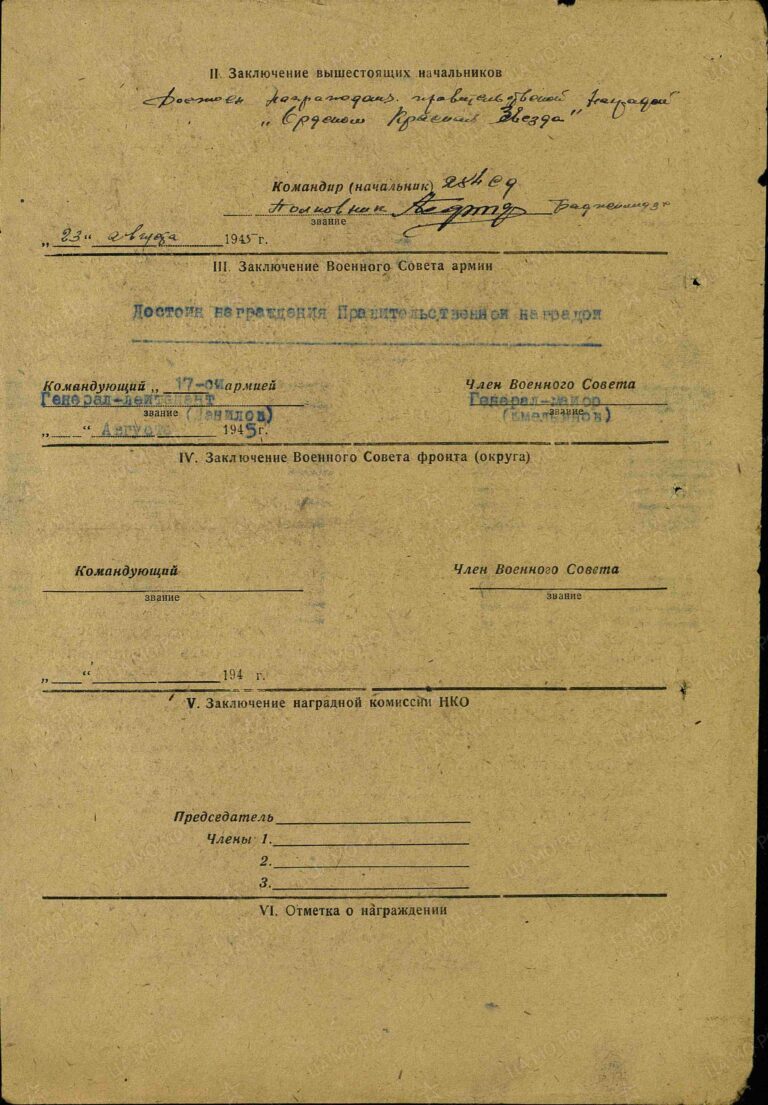 II. Заключение вышестоящих начальников
Достоен награждения правительственной наградой
„Орденом Красная Звезда"
Командир (начальник) 284 сд
Полковник
звание
„23" августа 1945 г.
III. Заключение Военного Совета армии
Достоин награждения Правительственной наградой
Командующий „ 17-ой армией Член Военного Совета
Генерал-лейтенант Генерал-майор
звание (Данилов) звание (Емельянов)
„ “ Августа 1945 г.
IV. Заключение Военного Совета фронта (округа)
Командующий Член Военного Совета
звание звание
„ “ 194 г.
V. Заключение наградной комиссии НКО
Председатель
Члены 1.
2.
3.
VI. Отметка о награждении